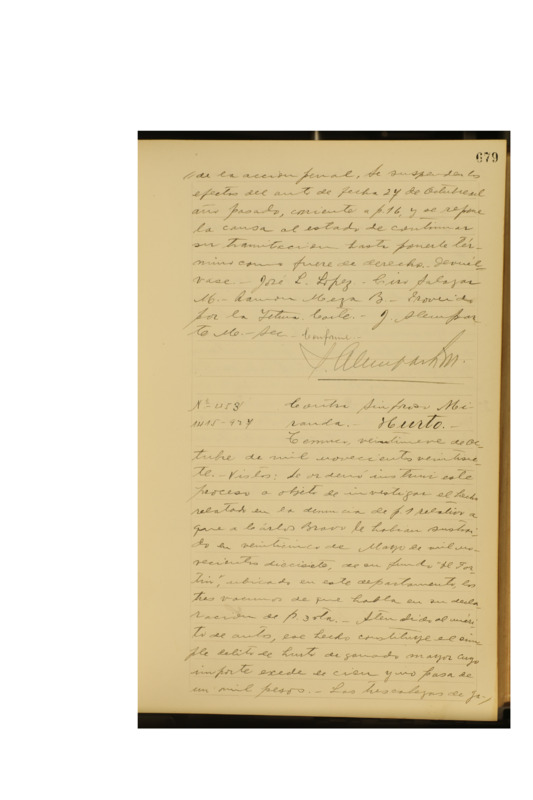 679
de la accion penal. Se suspenden los
efectos del auto de fecha 24 de Octubre del
año pasado, corriente a f. 16, y se repone
la causa al estado de continuar
su tramitacion hasta ponerle tér-
mino como fuere de derecho. Devuél-
vase. - José L. Lopez. - Ciro Salazar
M. - Ramon Meza B. - Proveido
por la Iltma. Corte. - J. Alempar
te M. - Sec. - Conforme.-
J. Alemparte M.
Nº 2158 Contra Sinforoso Mi
randa. - Hurto. -
Temuco, veintinueve de Oc-
tubre de mil novecientos veintisie-
te. - Vistos: Se ordenó instruir este
proceso a objeto de investigar el hecho
relatado en la denuncia de f. 1 relativo a
que a Carlos Bravo le habian sustrai-
do en veinticinco de Mayo de mil no-
vecientos diecisiete, de su fundo "El For-
tin", ubicado en este departamento, los
tres vacunos de que habla en su decla-
racion de f. vta. - Atendido el méri-
to de autos, ese hecho constituye el sim-
ple delito de hurto de ganado mayor cuyo
importe excede de cien y no pasa de
un mil pesos. - Las tres cabezas de ga-